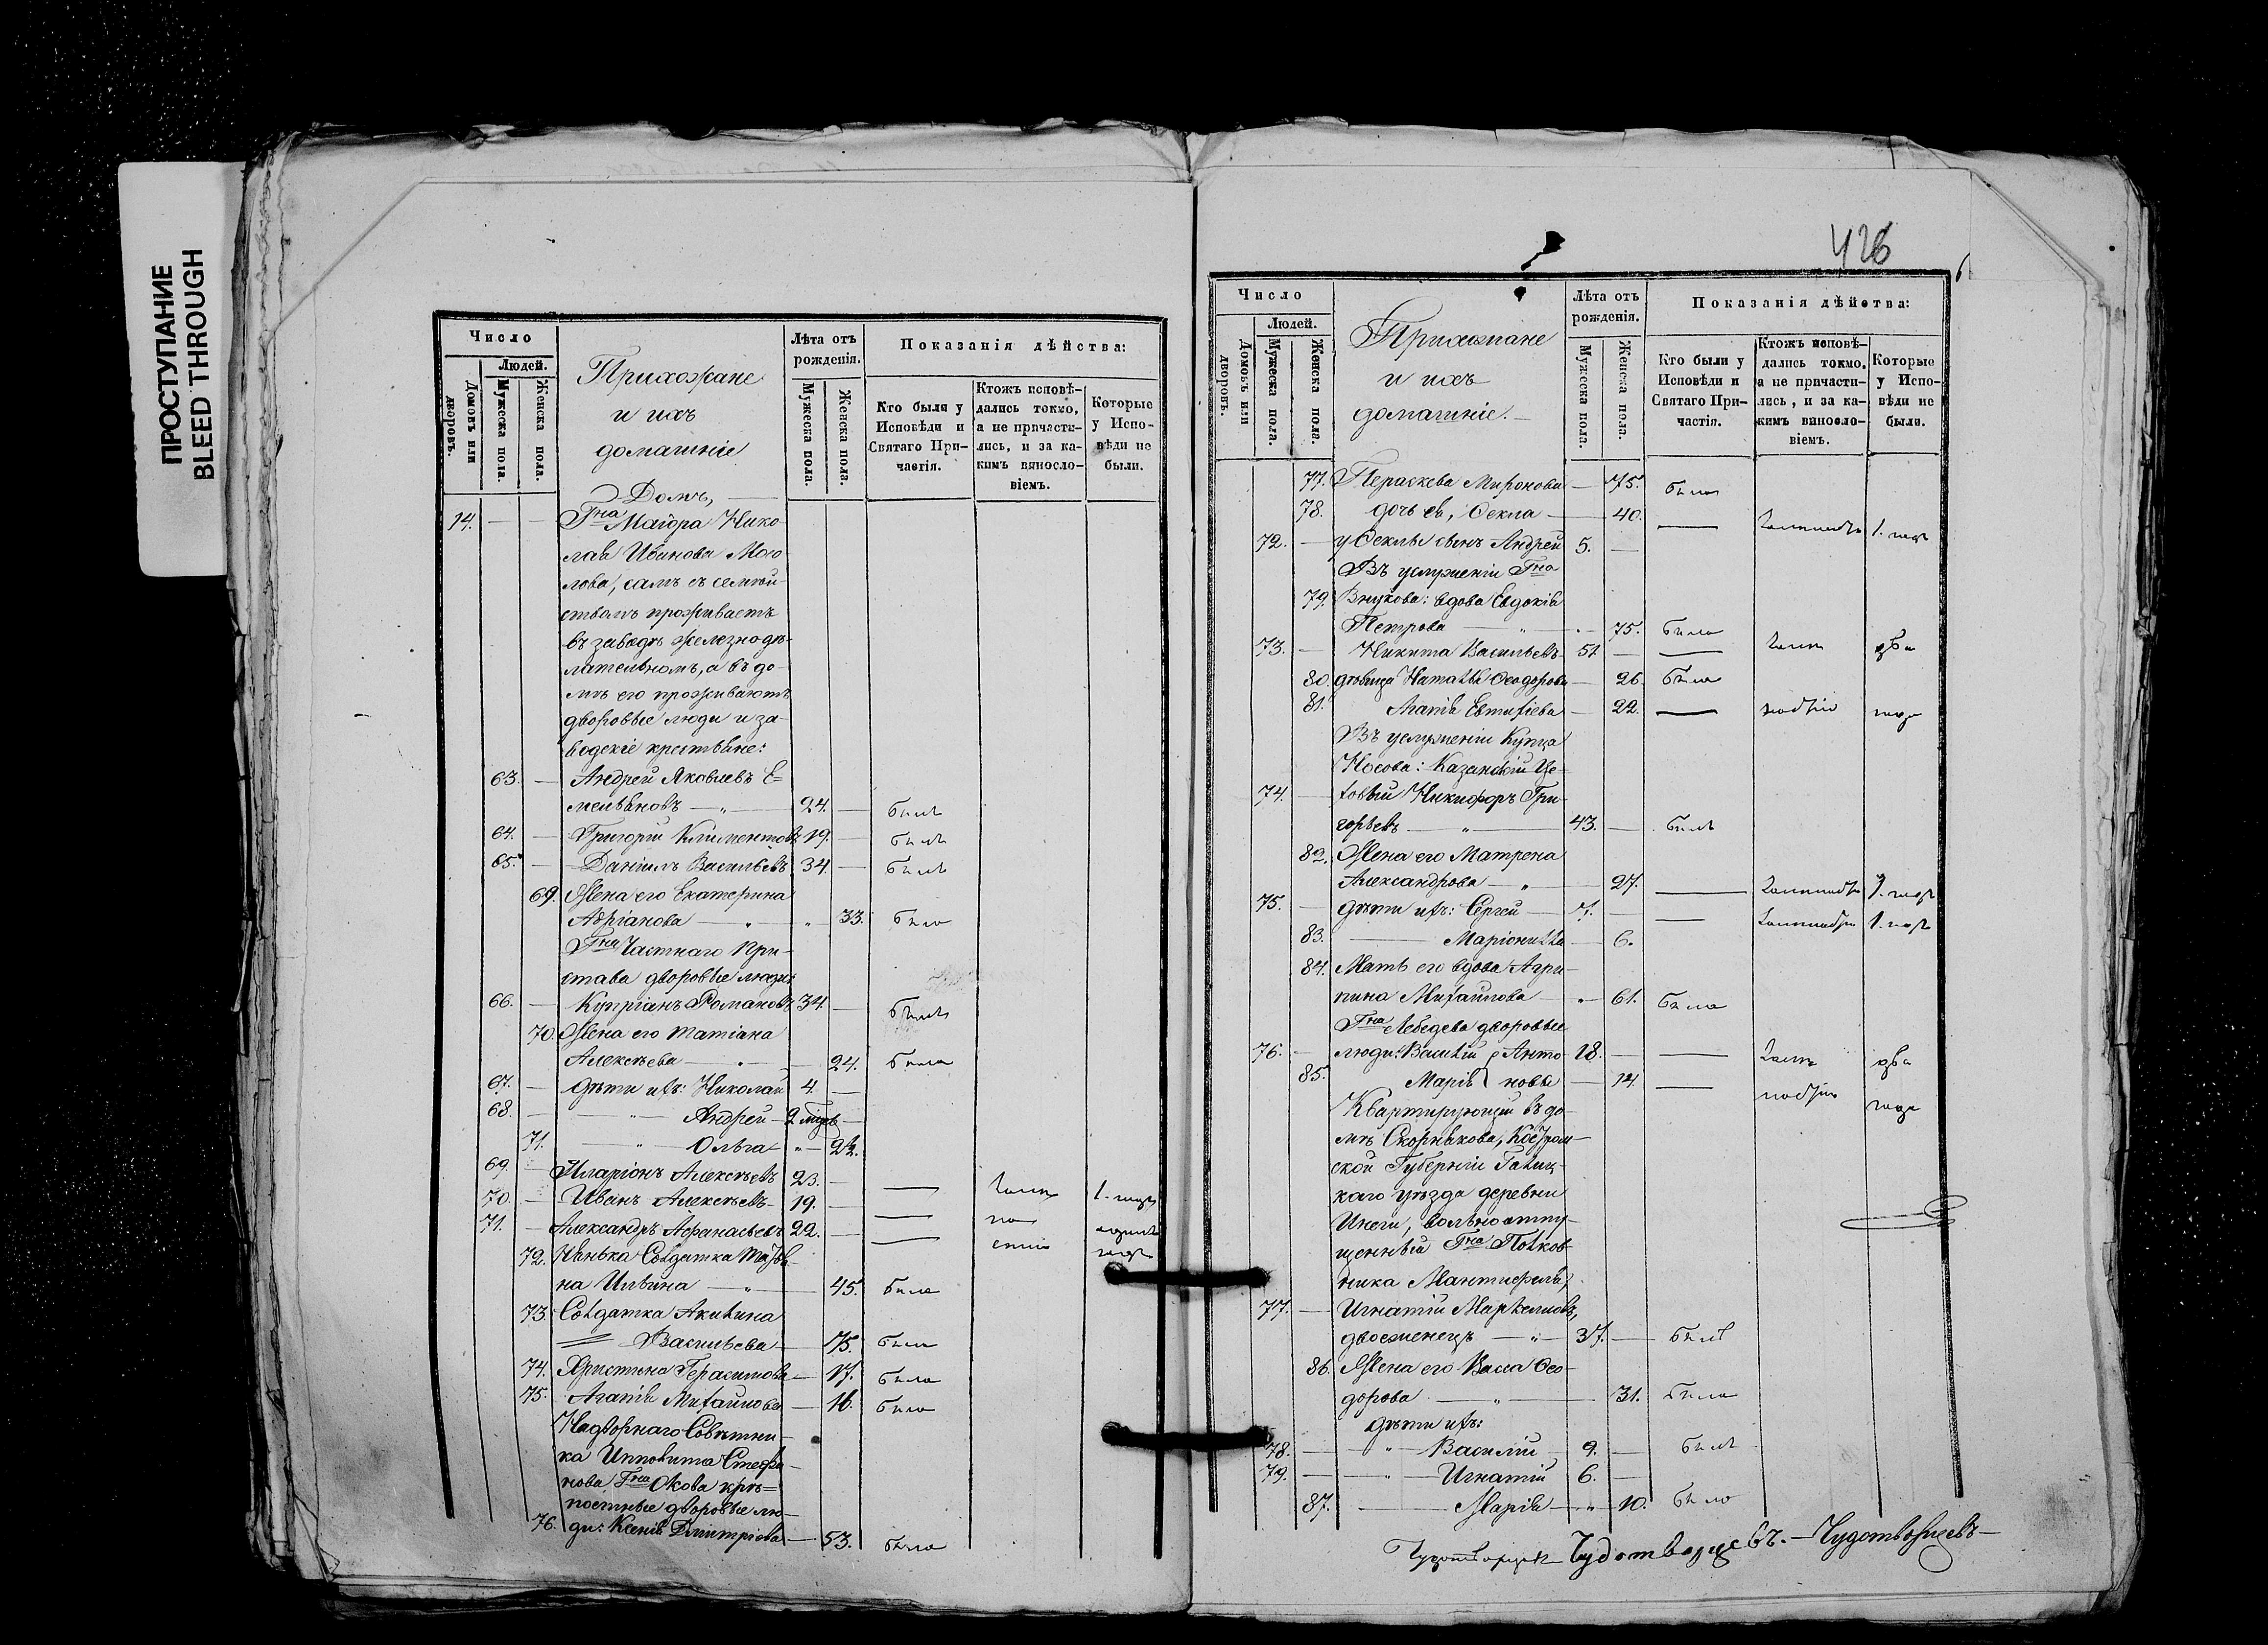 ПРОСТУПАНИЕ
BLEED THROUGH
Число
Людей.
Домовъ или дворовъ.
Мужеска пола.
Женска пола.
Прихожане
и ихъ
домашніе
Лѣта отъ рожденія.
Мужеска пола.
Женска пола.
Показанія дѣйства:
Кто были у Исповѣди и Святаго Причастія.
Ктожъ исповѣдались токмо, а не причастились, и за какимъ винословіемъ.
Которые у Исповѣди не были.
Домъ,
14. — — Гна Маіора Нико-
лая Иванова Мосо-
лова, самъ съ семей-
ствомъ проживаетъ
въ заводѣ железнодѣ-
лательномъ, а въ до-
мѣ его проживаютъ
дворовые люди и за-
водскіе крестьяне:
63. — Андрей Яковлевъ Е=
мельяновъ — „ 24. — былъ
64. — Григорій Климентовъ 19. — былъ
65. — Даніилъ Васильевъ 34. — былъ
69. Жена его Екатерина
Адріанова — „ — „ 33. была
Гна Частнаго При-
става дворовые люди:
66. — Купріанъ Романовъ 34 — былъ
70. Жена его Татіана
Алексѣева — „ — 24. была
67. — дѣти ихъ: Николай 4. —
68. — — „ — Андрей — 2 —
71. — „ — Ольга „ —
69. — Иларіонъ Алексѣевъ 23. — — 1. годъ
70. — Иванъ Алексѣевъ 19. — — по
71. — Александръ Афанасьевъ 22. — —
72. Нянька Солдатка Татья-
на Ильина — „ — 45. была
73. Солдатка Акилина
Васильева — 75. была
74. Христина Герасимова — 17. была
75. Агапія Михайлова — 16. была
Надворнаго Совѣтни-
ка Ипполита Стефа-
нова Гна Окова крѣ=
постные дворовые лю-
76. ди: Ксенія Дмитріева — 53. была
426
Число
Людей.
Домовъ или дворовъ.
Мужеска пола.
Женска пола.
Прихожане
и ихъ
домашніе. —
Лѣта отъ рожденія.
Мужеска пола.
Женска пола.
Показанія дѣйства:
Кто были у Исповѣди и Святаго Причастія.
Ктожъ исповѣдались токмо, а не причастились, и за какимъ винословіемъ.
Которые у Исповѣди не были.
77. Пераскева Миронова — 75. была
78. дочь ея, Ѳекла — 40. — 1. годъ
72. — у Ѳеклы сынъ Андрей 5. —
Въ услуженіи Гна
79. Внукова: вдова Евдокія
Петрова — „ — 75. была
73. — Никита Васильевъ 51. — — два
80. дѣвица Наталья Ѳеодорова — 26. была
81. Агапія Евтихіева — 22. — года
Въ услуженіи Купца
Носова: Казанскій Це-
74. — ховый Никифоръ Гри-
горьевъ — „ — 43. — былъ
82. Жена его Матрена
Александрова — „ — 27. — 1. годъ
75. — дѣти ихъ: Сергей — 7. — — 1. годъ
83. — Маріонилла — 6.
84. Мать его вдова Агри-
пина Михайлова — „ — 61. была
Гна Лебедева дворовые
76. — люди: Василій Анто- 18. — — два
85. Марія новы — 14. — года
Квартирующій въ до-
мѣ Скорнякова, Костром-
ской Губерніи Галиц-
каго уѣзда деревни
вольноотпу-
щенный Гна Полков-
ника Мантиефеля,
77. — Игнатій Маркелловъ,
двоеженецъ — „ — 37. — былъ
86. Жена его Васса Ѳео-
дорова — „ — 31. была
дѣти ихъ:
78. — „ — Василій — 9. — былъ
79. — „ — Игнатій 6. —
87. — Марія — „ — 10. была
Чудотворцевъ. — Чудотворцевъ —